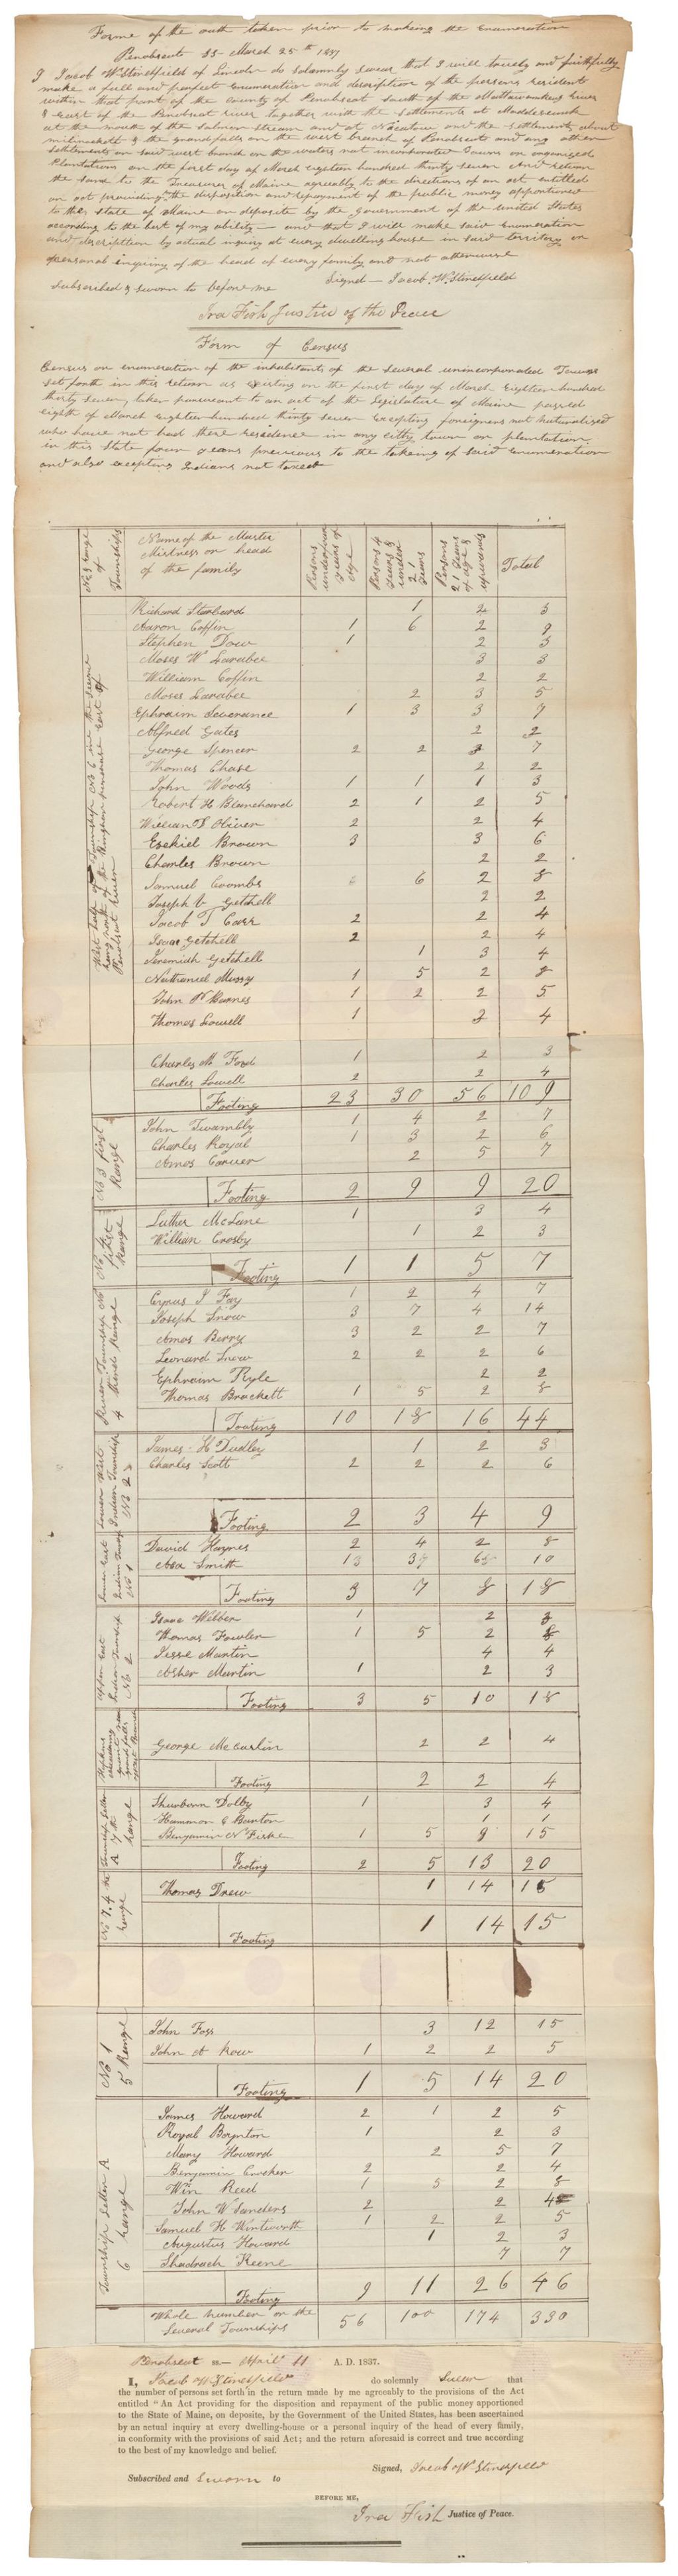 Forme of the oath taken prior to making the Enumeration
Penobscott SS- March 25th 1837
I Jacob W. Stinchfield of Lincoln do Solemnly Swear that I will truely and faithfully
make a full and perfect Enumeration and discription of the persons resident
within that part of the County of Penobscot South of the Mattawamkeag River
& East of the Penobscot River together with the Settlements at Madderseunk
at the mouth of the Salmon Stream and at Nicatow and the Settlements about
millnockett & the grand falls on the west branch of Penobscot and any other
Settlements on said west branch on the waters not incorporated Towns or organised
Plantations on the first day of March eighteen hundred thirty seven And return
the same to the Treasurer of Maine agreeably to the directions of an act entitled
an act providing the disposition and repayment of the public money apportioned
to the State of Maine on deposite by the Government of the United States
according to the best of my ability — and that I will make said Enumeration
and discription by actual inquiry at every dwelling house in said territory or
personal inquiry of the head of every family and not otherwise
Signed — Jacob W. Stinchfield
Subscribed & Sworn to before me
Ira Fish Justice of the Peace
Form of Census
Census or enumeration of the inhabitants of the several unincorporated Towns
set forth in this return as existing on the first day of March Eighteen hundred
thirty seven, taken pursuant to an act of the Legislature of Maine passed
eighth of March eighteen hundred thirty seven Excepting foreigners not naturalised
who have not had there residence in any citty town or plantation
in this State four years previous to the takeing of said Enumeration
and also excepting Indians not taxed
No & range of Townships
Name of the Master Mistress or head of the family
Persons under four years of age
Persons 4 years & under 21 years
Persons 21 years of age & upwards
Total
West half of Township No 6
Penobscot River
Richard Starbard 1 2 3
Aaron Coffin 1 6 2 9
Stephen Dow 1 2 3
Moses W Larabee 3 3
William Coffin 2 2
Moses Larabee 2 3 5
Ephraim Severance 1 3 3 7
Alfred Gates 2 2
George Spencer 2 2 3 7
Thomas Chase 2 2
John Woods 1 1 1 3
Robert H Blanchard 2 1 2 5
William S Oliver 2 2 4
Ezekiel Brown 3 3 6
Charles Brown 2 2
Samuel Coombs 6 2 8
Joseph V Getchell 2 2
Jacob T Carr 2 2 4
Isaac Getchell 2 2 4
Jeremiah Getchell 1 3 4
Nathaniel Mussy 1 5 2 8
John N Barnes 1 2 2 5
Thomas Lowell 1 3 4
Charles M Ford 1 2 3
Charles Lowell 2 2 4
Footing 23 30 56 109
No 3 first Range
John Twambly 1 4 2 7
Charles Royal 1 3 2 6
Amos Carver 2 5 7
Footing 2 9 9 20
No 4 first Range
Luther McLane 1 3 4
William Crosby 1 2 3
Footing 1 1 5 7
River Township No 4 third Range
Cyrus S Fay 1 2 4 7
Joseph Snow 3 7 4 14
Amos Berry 3 2 2 7
Leonard Snow 2 2 2 6
Ephraim Ryle 2 2
Thomas Brackett 1 5 2 8
Footing 10 18 16 44
Lower West Indian Township No 2
James H Dudley 1 2 3
Charles Scott 2 2 2 6
Footing 2 3 4 9
Lower East Indian Township No 1
David Haynes 2 4 2 8
Asa Smith 1 3 6 10
Footing 3 7 8 18
Upper East Indian Township No 2
Isaac Webber 1 2 3
Thomas Fowler 1 5 2 8
Jesse Martin 4 4
Asher Martin 1 2 3
Footing 3 5 10 18
Hopkins Academy grant near grand falls West Branch
George McCarslin 2 2 4
Footing 2 2 4
Township Letter A 7th Range
Shurborn Dolby 1 3 4
Hammon C Burton 1 1
Benjamin N Fiske 1 5 9 15
Footing 2 5 13 20
No 7. 4 the Range
Thomas Drew 1 14 15
Footing 1 14 15
No 1 5 Range
John Foss 3 12 15
John A Row 1 2 2 5
Footing 1 5 14 20
Township Letter A 6 Range
James Howard 2 1 2 5
Royal Boynton 1 2 3
Mary Howard 2 5 7
Benjamin Crocker 2 2 4
Win Reed 1 5 2 8
John W Sanders 2 2 4
Samuel H Wintworth 1 2 2 5
Augustus Howard 1 2 3
Shadrach Keene 7 7
Footing 9 11 26 46
Whole number on the Several Townships 56 100 174 330
Penobscot ss— April 11 A. D. 1837.
I, Jacob W Stinchfield do solemnly Swear that
the number of persons set forth in the return made by me agreeably to the provisions of the Act
entitled "An Act providing for the disposition and repayment of the public money apportioned
to the State of Maine, on deposite, by the Government of the United States, has been ascertained
by an actual inquiry at every dwelling-house or a personal inquiry of the head of every family,
in conformity with the provisions of said Act; and the return aforesaid is correct and true according
to the best of my knowledge and belief.
Signed, Jacob W Stinchfield
Subscribed and Sworn to
BEFORE ME,
Ira Fish Justice of Peace.